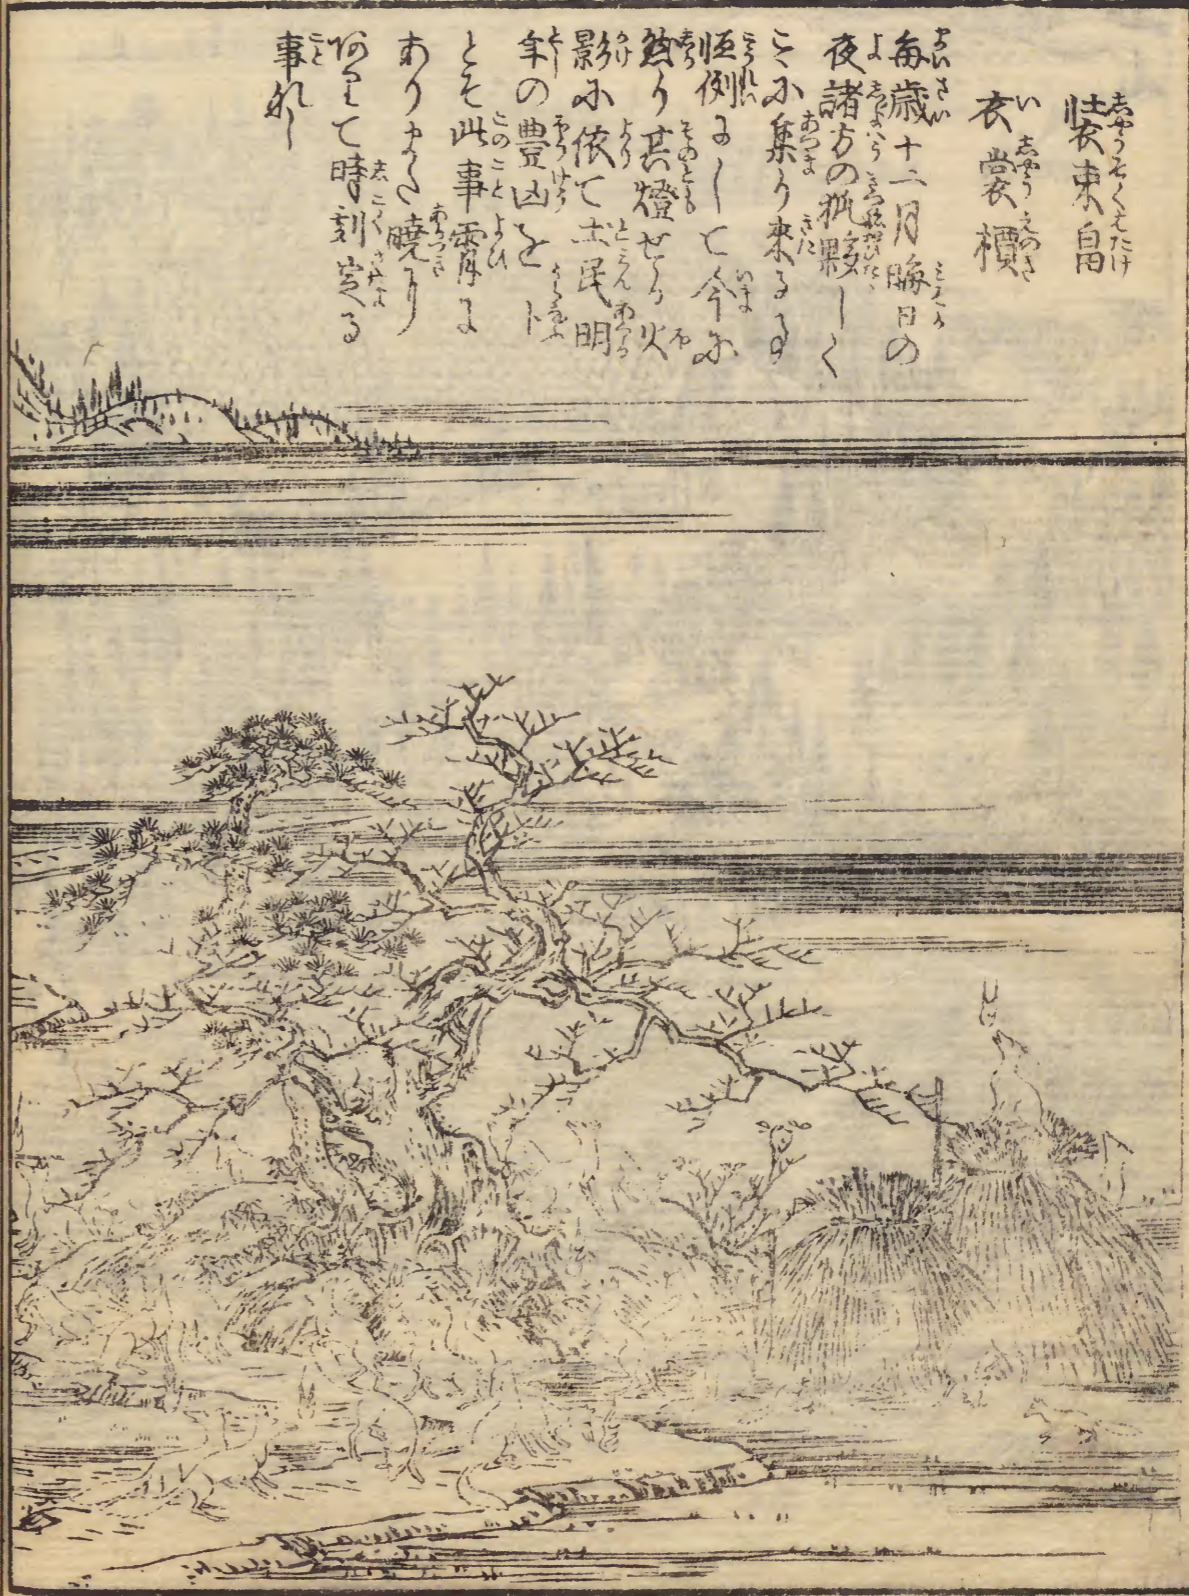 装束畠
衣裳榎
毎歳十二月晦日の
夜諸方の狐夥しく
こゝに集り來る事
恒例にして今に
然り其燈せる火
影に依て土民明
年の豊凶を卜
とそ此事宵に
ありまた暁に
ありて時刻定る
事なし